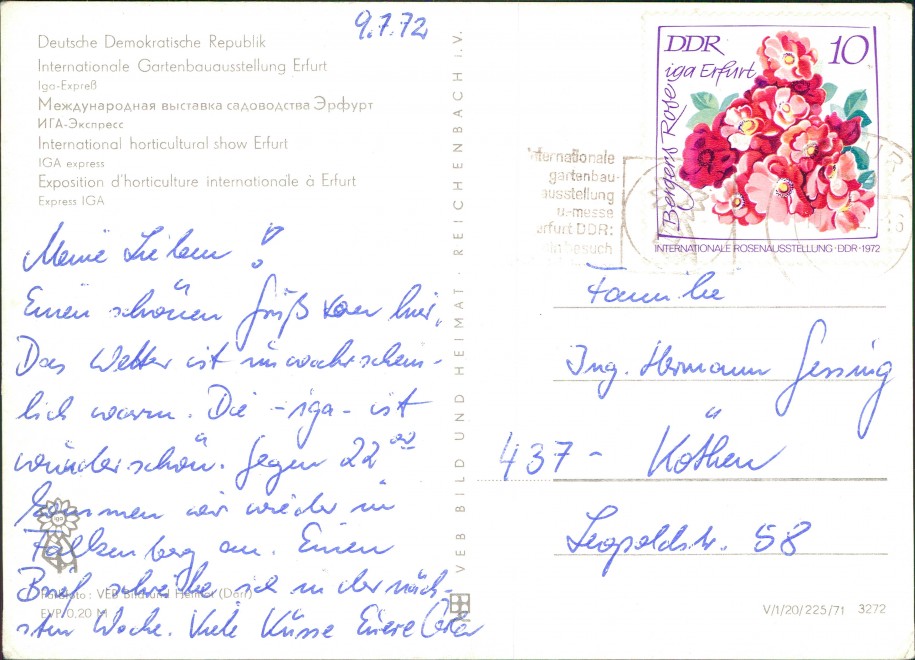 9.7.72
Deutsche Demokratische Republik
Internationale Gartenbauausstellung Erfurt
Iga-Expreß
Международная выставка садоводства Эрфурт
ИГА-Экспресс
International horticultural show Erfurt
IGA express
Exposition d'horticulture internationale à Erfurt
Express IGA
Meine Lieben!
Einen schönen Gruß von hier.
Das Wetter ist unwahrschein-
lich warm. Die -iga- ist
wunderschön. Gegen 22⁰⁰
kommen wir wieder in
Falkenberg an. Einen
Brief schreibe ich in der näch-
sten Woche. Viele Küsse Euere
Farbfoto: VEB Bild und Heimat (Dörr)
EVP 0,20 M
VEB BILD UND HEIMAT · REICHENBACH i.V.
DDR 10
iga Erfurt
Bergers Rose
INTERNATIONALE ROSENAUSSTELLUNG · DDR · 1972
internationale
gartenbau-
ausstellung
u-messe
erfurt DDR:
besuch
Familie
Ing. Hermann Gessing
437 - Köthen
Leopoldstr. 58
V/1/20/225/71 3272